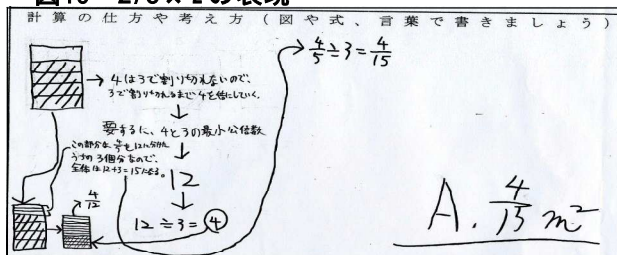 計算の仕方や考え方（図や式、言葉で書きましょう）
→ 4は3で割り切れないので、
3で割り切れるまで4を倍にしていく。
↓
要するに、4と3の最小公倍数
↓
12
↓
12÷3=④
この部分は
うちの3個分なので、
全体は12+3=15になる。
4/12
4/5÷3=4/15
A. 4/15 m²